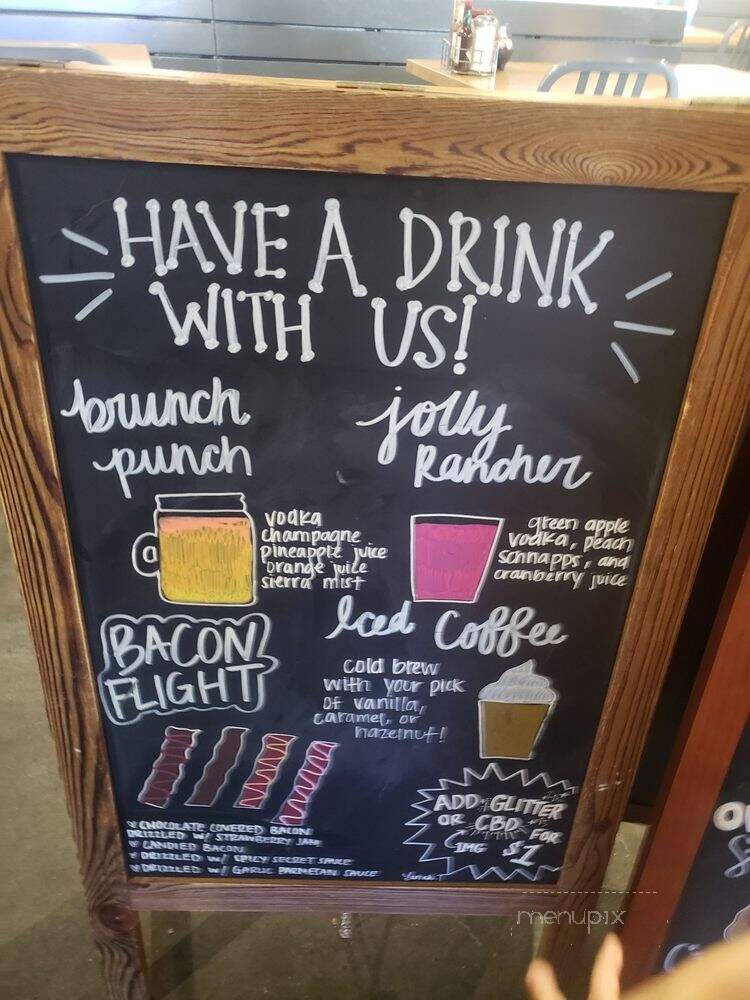 HAVE A DRINK
WITH US!
brunch
punch
vodka
champagne
pineapple juice
orange juice
sierra mist
jolly
Rancher
green apple
vodka, peach
schnapps, and
cranberry juice
BACON
FLIGHT
Iced Coffee
cold brew
with your pick
of vanilla,
caramel, or
hazelnut!
CHOCOLATE COVERED BACON
DRIZZLED W/ STRAWBERRY JAM
CANDIED BACON
DRIZZLED W/ SPICY SECRET SAUCE
DRIZZLED W/ GARLIC PARMESAN SAUCE
ADD GLITTER
OR CBD FOR
1MG $1
menupix